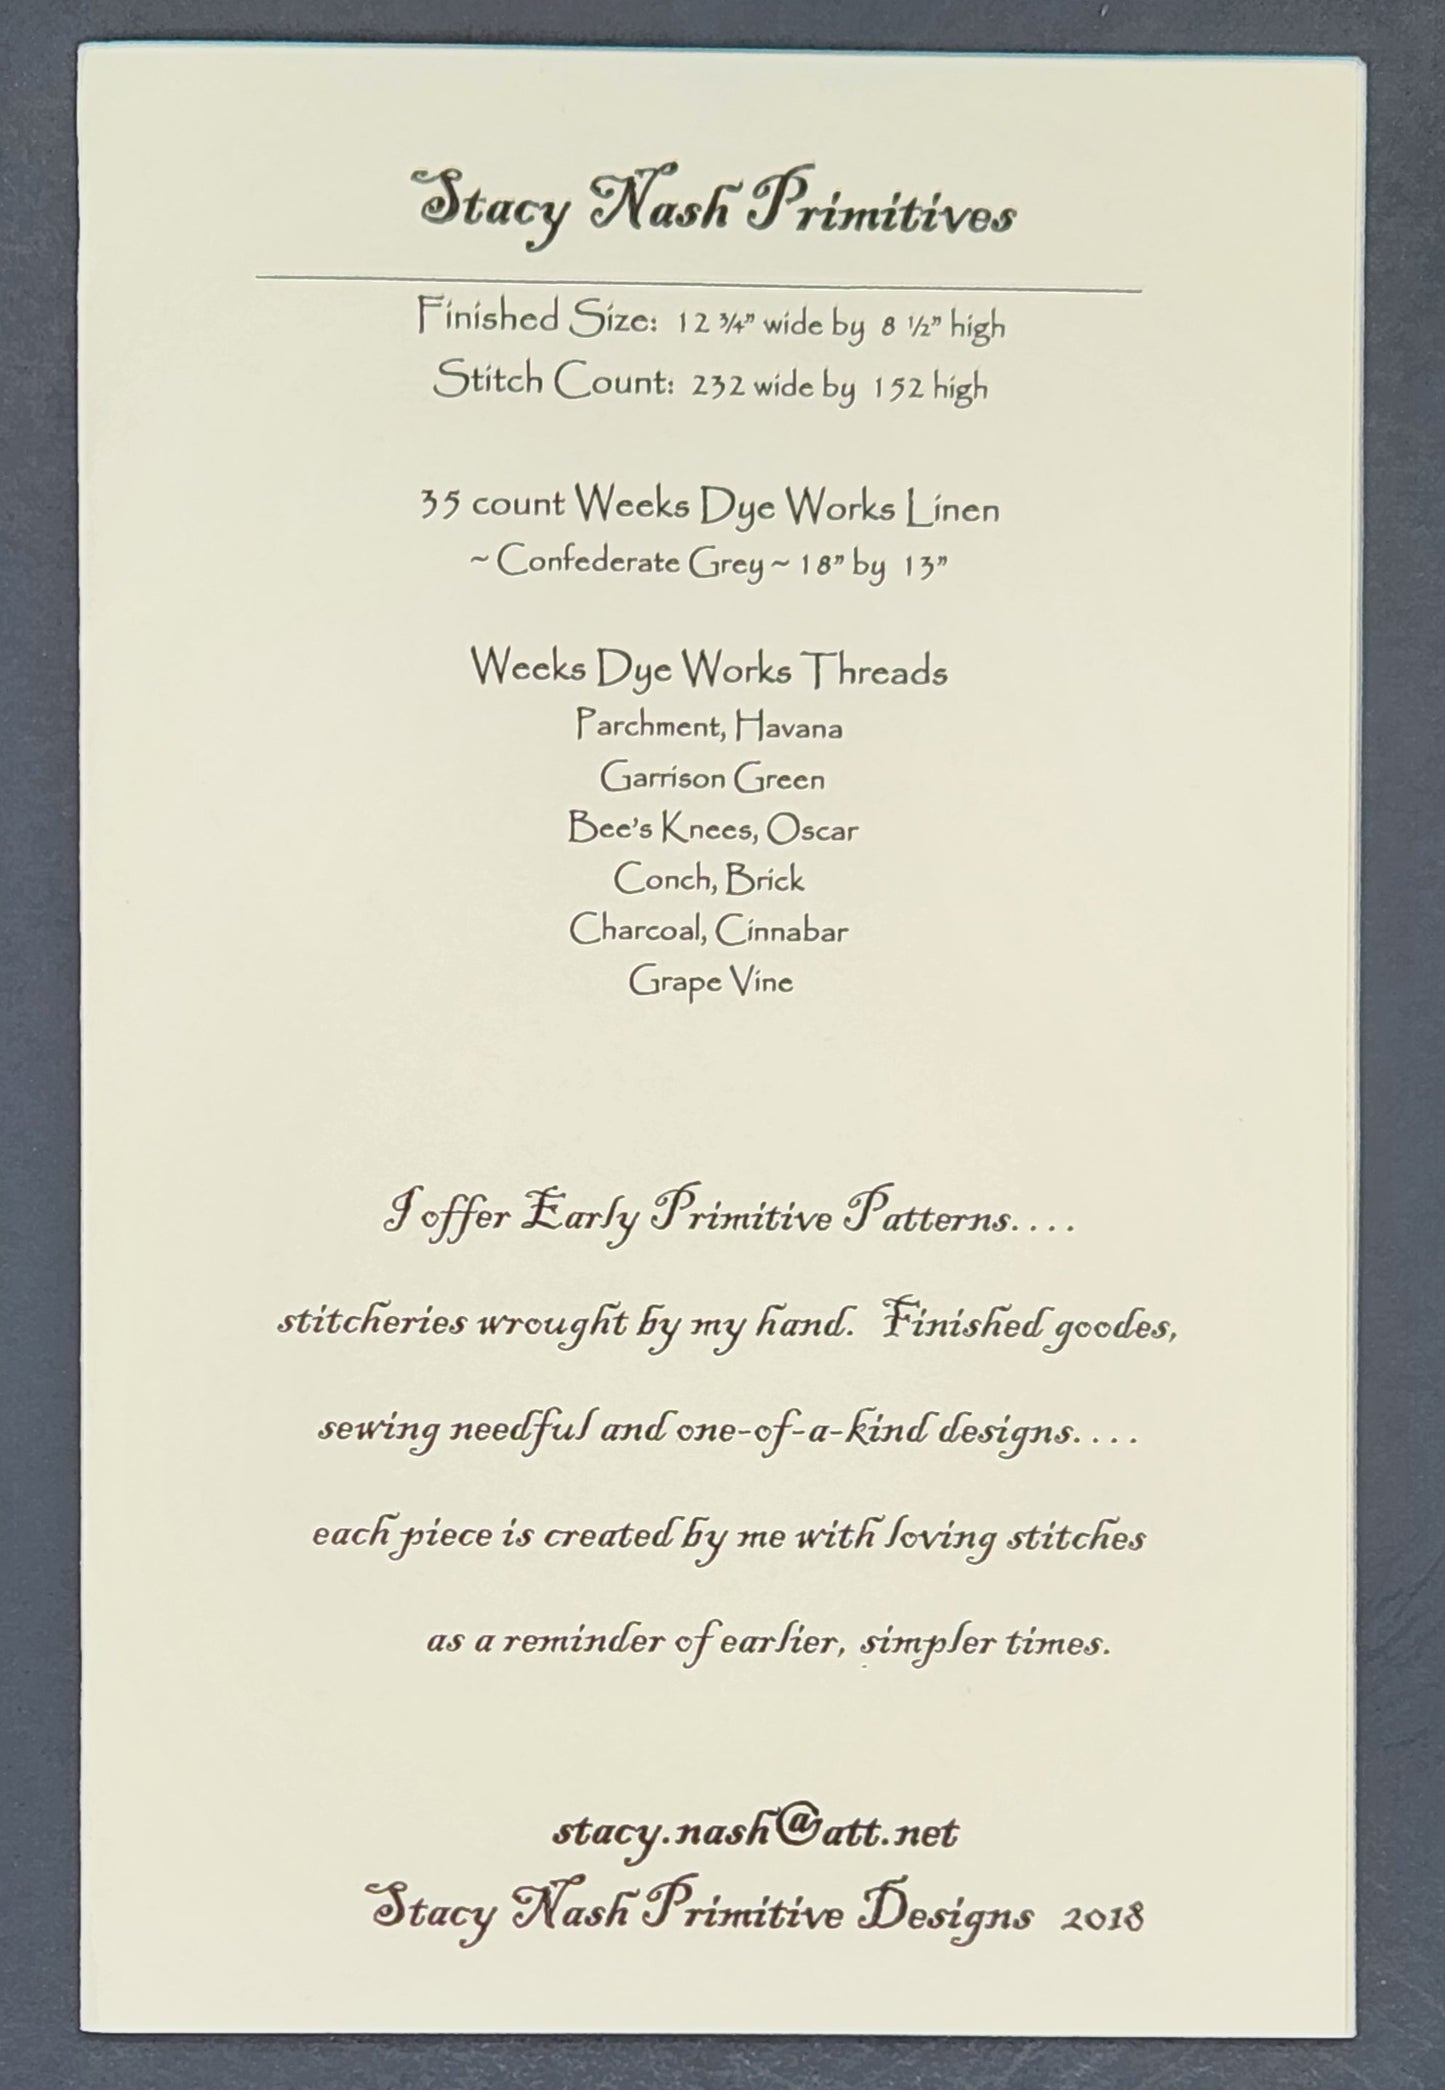 Stacy Nash Primitives
Finished Size: 12 ¾” wide by 8 ½” high
Stitch Count: 232 wide by 152 high
35 count Weeks Dye Works Linen
~ Confederate Grey ~ 18” by 13”
Weeks Dye Works Threads
Parchment, Havana
Garrison Green
Bee’s Knees, Oscar
Conch, Brick
Charcoal, Cinnabar
Grape Vine
I offer Early Primitive Patterns. . . .
stitcheries wrought by my hand. Finished goodes,
sewing needful and one-of-a-kind designs. . . .
each piece is created by me with loving stitches
as a reminder of earlier, simpler times.
stacy.nash@att.net
Stacy Nash Primitive Designs 2018